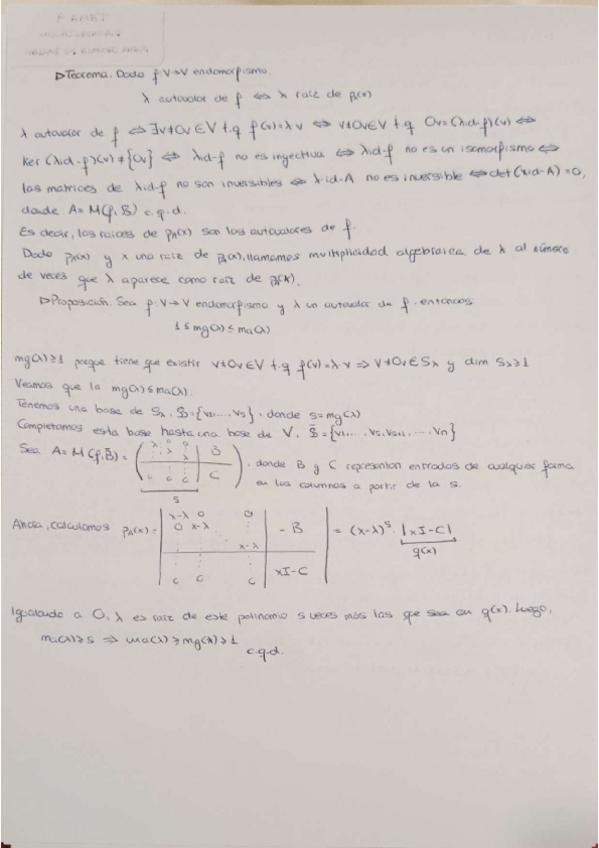 ▷Teorema. Dado f: V→V endomorfismo.
λ autovalor de f ⇔ λ raíz de p_A(x)
λ autovalor de f ⇔ ∃v≠0v∈V t.q f(v)=λv ⇔ v≠0v∈V t.q 0v=(λid-f)(v) ⇔
Ker(λid-f)(v)≠{0v} ⇔ λid-f no es inyectiva ⇔ λid-f no es un isomorfismo ⇔
las matrices de λid-f no son inversibles ⇔ λid-A no es inversible ⇔ det(λid-A)=0,
donde A=M(f,B) c.q.d.
Es decir, las raíces de p_A(x) son los autovalores de f.
Dado p_A(x) y λ una raíz de p_A(x), llamamos multiplicidad algebraica de λ al número
de veces que λ aparece como raíz de p_A(x).
▷Proposición. Sea f: V→V endomorfismo y λ un autovalor de f. entonces:
1≤mg(λ)≤ma(λ)
mg(λ)≥1 porque tiene que existir v≠0v∈V t.q f(v)=λ·v ⇒ v≠0v∈S_λ y dim S_λ≥1
Veamos que la mg(λ)≤ma(λ).
Tenemos una base de S_λ, B={v₁,...,vs}, donde s=mg(λ)
Completamos esta base hasta una base de V, B̃={v₁,...,vs,vs+1,...,vn}
Sea A=M(f,B̃)= (λ 0 0 λ λ 0 0 0 | B C) , donde B y C representan entradas de cualquier forma
s en las columnas a partir de la s.
Ahora, calculamos p_A(x)= | x-λ 0 0 0 x-λ x-λ 0 0 0 | -B xI-C | = (x-λ)^s · |xI-C|
q(x)
Igualando a 0, λ es raíz de este polinomio s veces más las que sea en q(x). Luego,
ma(λ)≥s ⇒ ma(λ)≥mg(λ)≥1
c.q.d.